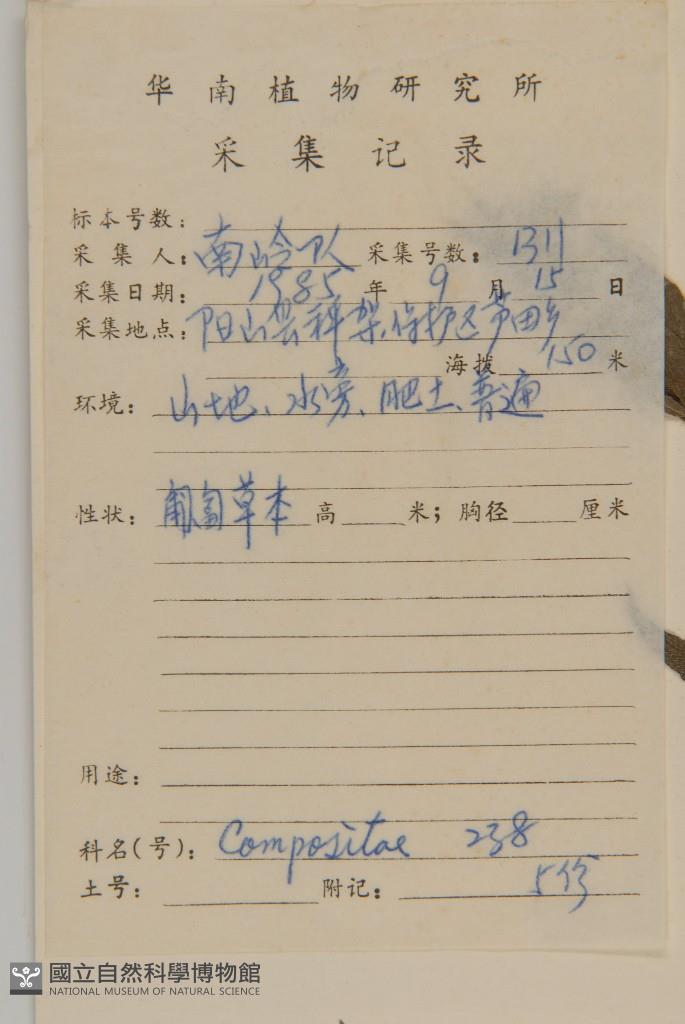 华南植物研究所
采集记录
标本号数:
采集人: 南岭队 采集号数: 1311
采集日期: 1985年9月15日
采集地点: 阳山县秤架保护区芦田乡
海拨 750 米
环境: 山地、水旁、肥土、普遍
性状: 匍匐草本 高 米; 胸径 厘米
用途:
科名(号): Compositae 238
土号: 附记: 5份
國立自然科學博物館
NATIONAL MUSEUM OF NATURAL SCIENCE